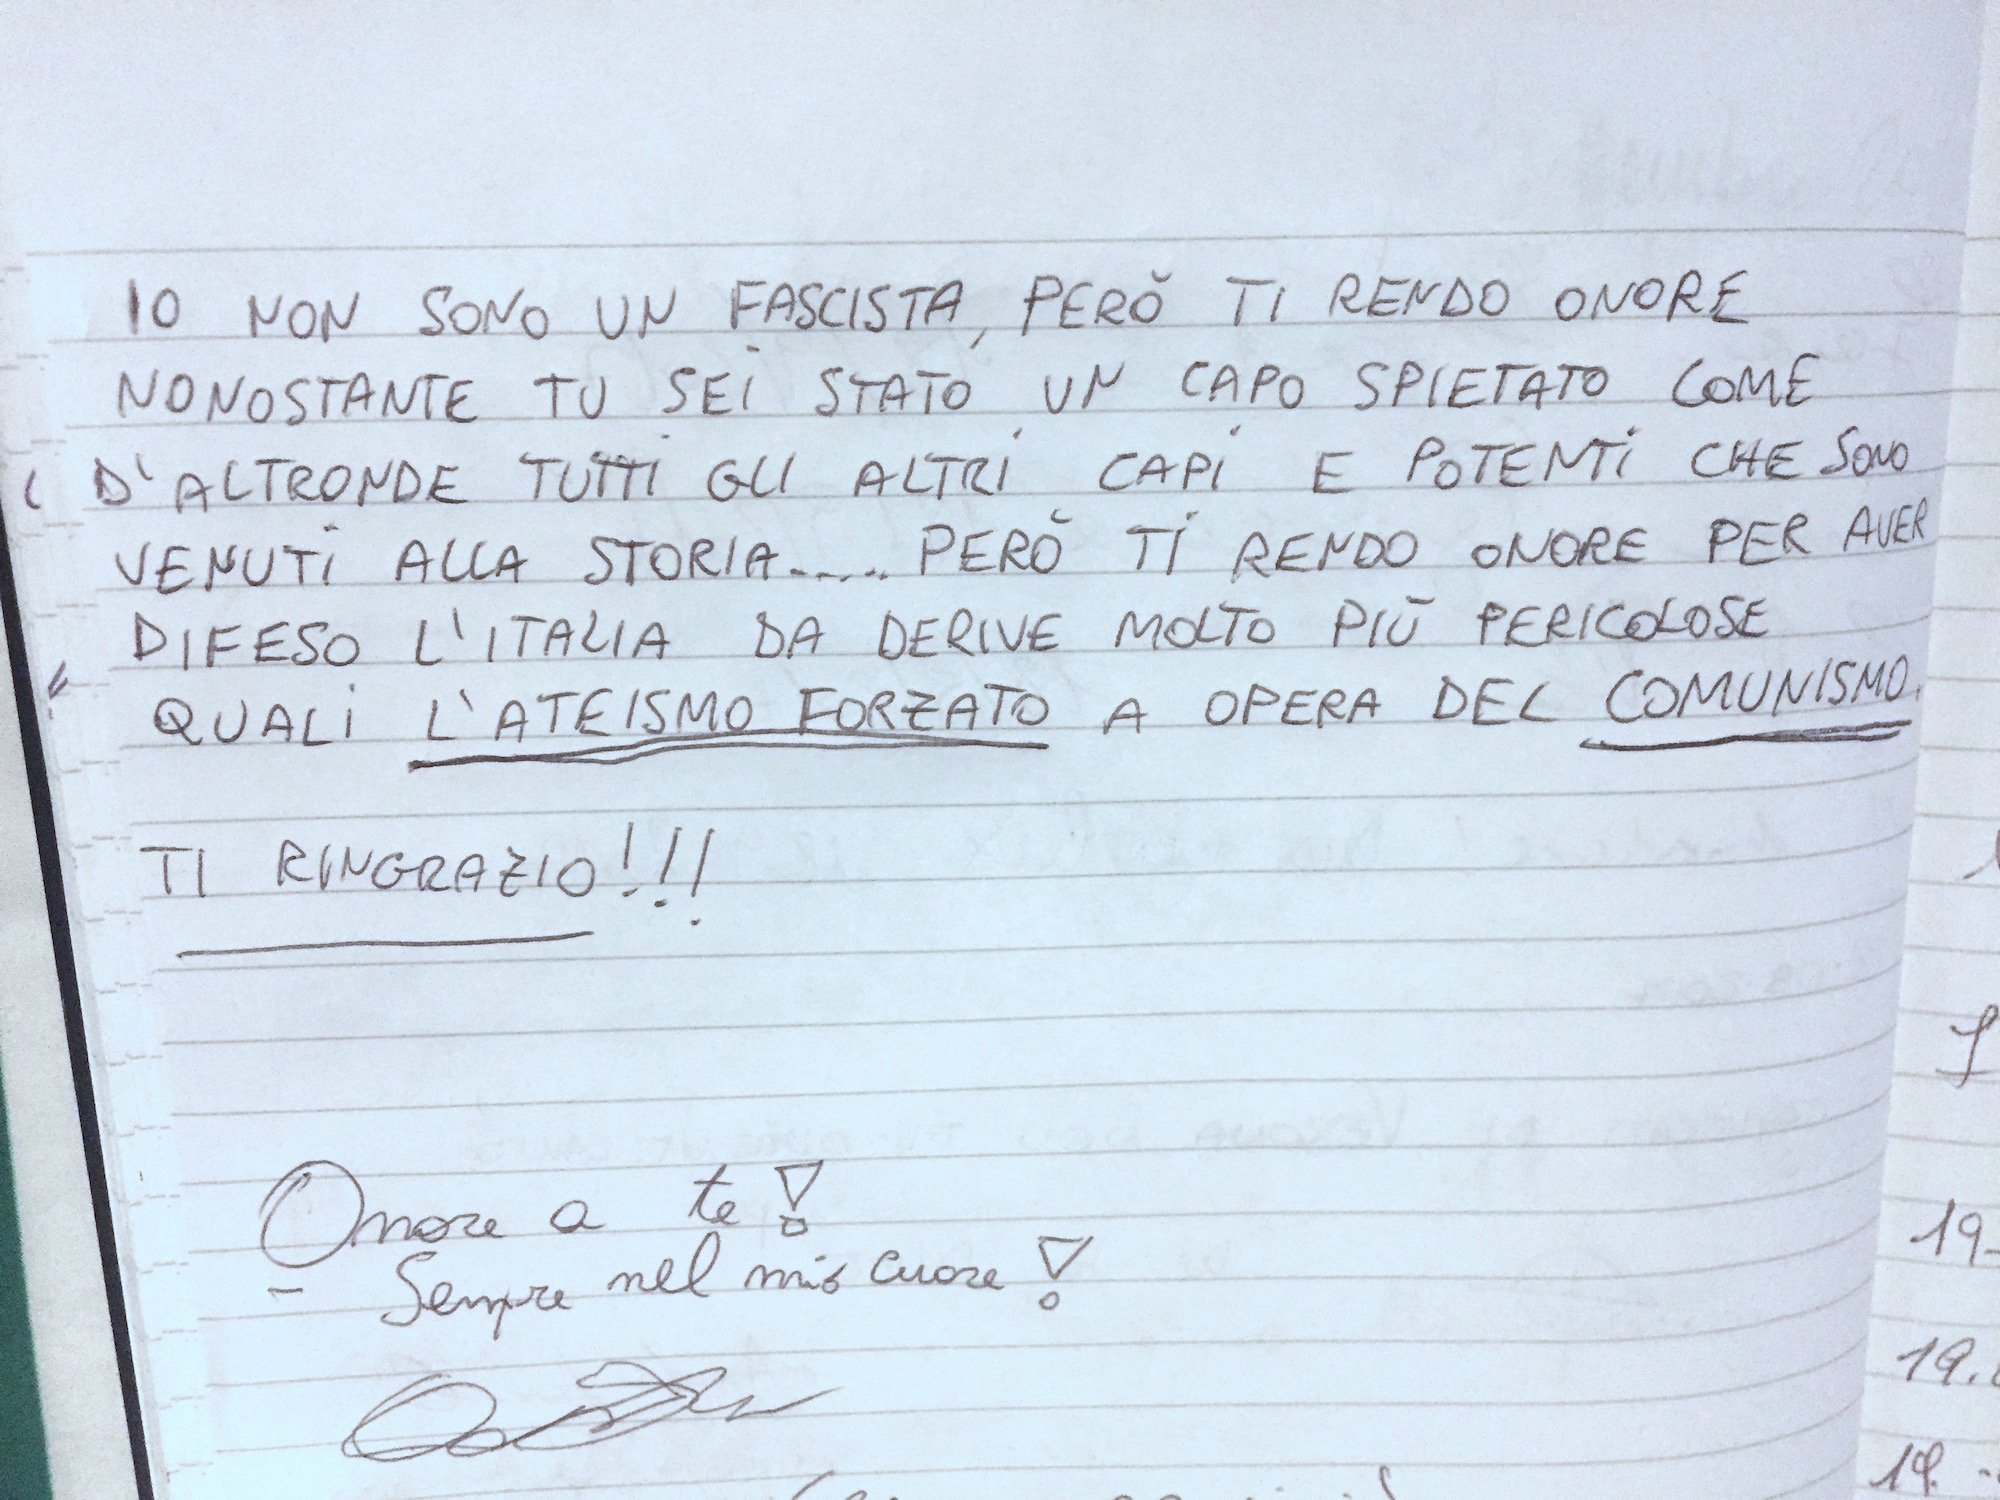 IO NON SONO UN FASCISTA, PERÒ TI RENDO ONORE
NONOSTANTE TU SEI STATO UN CAPO SPIETATO COME
D'ALTRONDE TUTTI GLI ALTRI CAPI E POTENTI CHE SONO
VENUTI ALLA STORIA..... PERÒ TI RENDO ONORE PER AVER
DIFESO L'ITALIA DA DERIVE MOLTO PIÙ PERICOLOSE
QUALI L'ATEISMO FORZATO A OPERA DEL COMUNISMO.
TI RINGRAZIO!!!
Onore a te!
- Sempre nel mio cuore!
19-
19.
19.